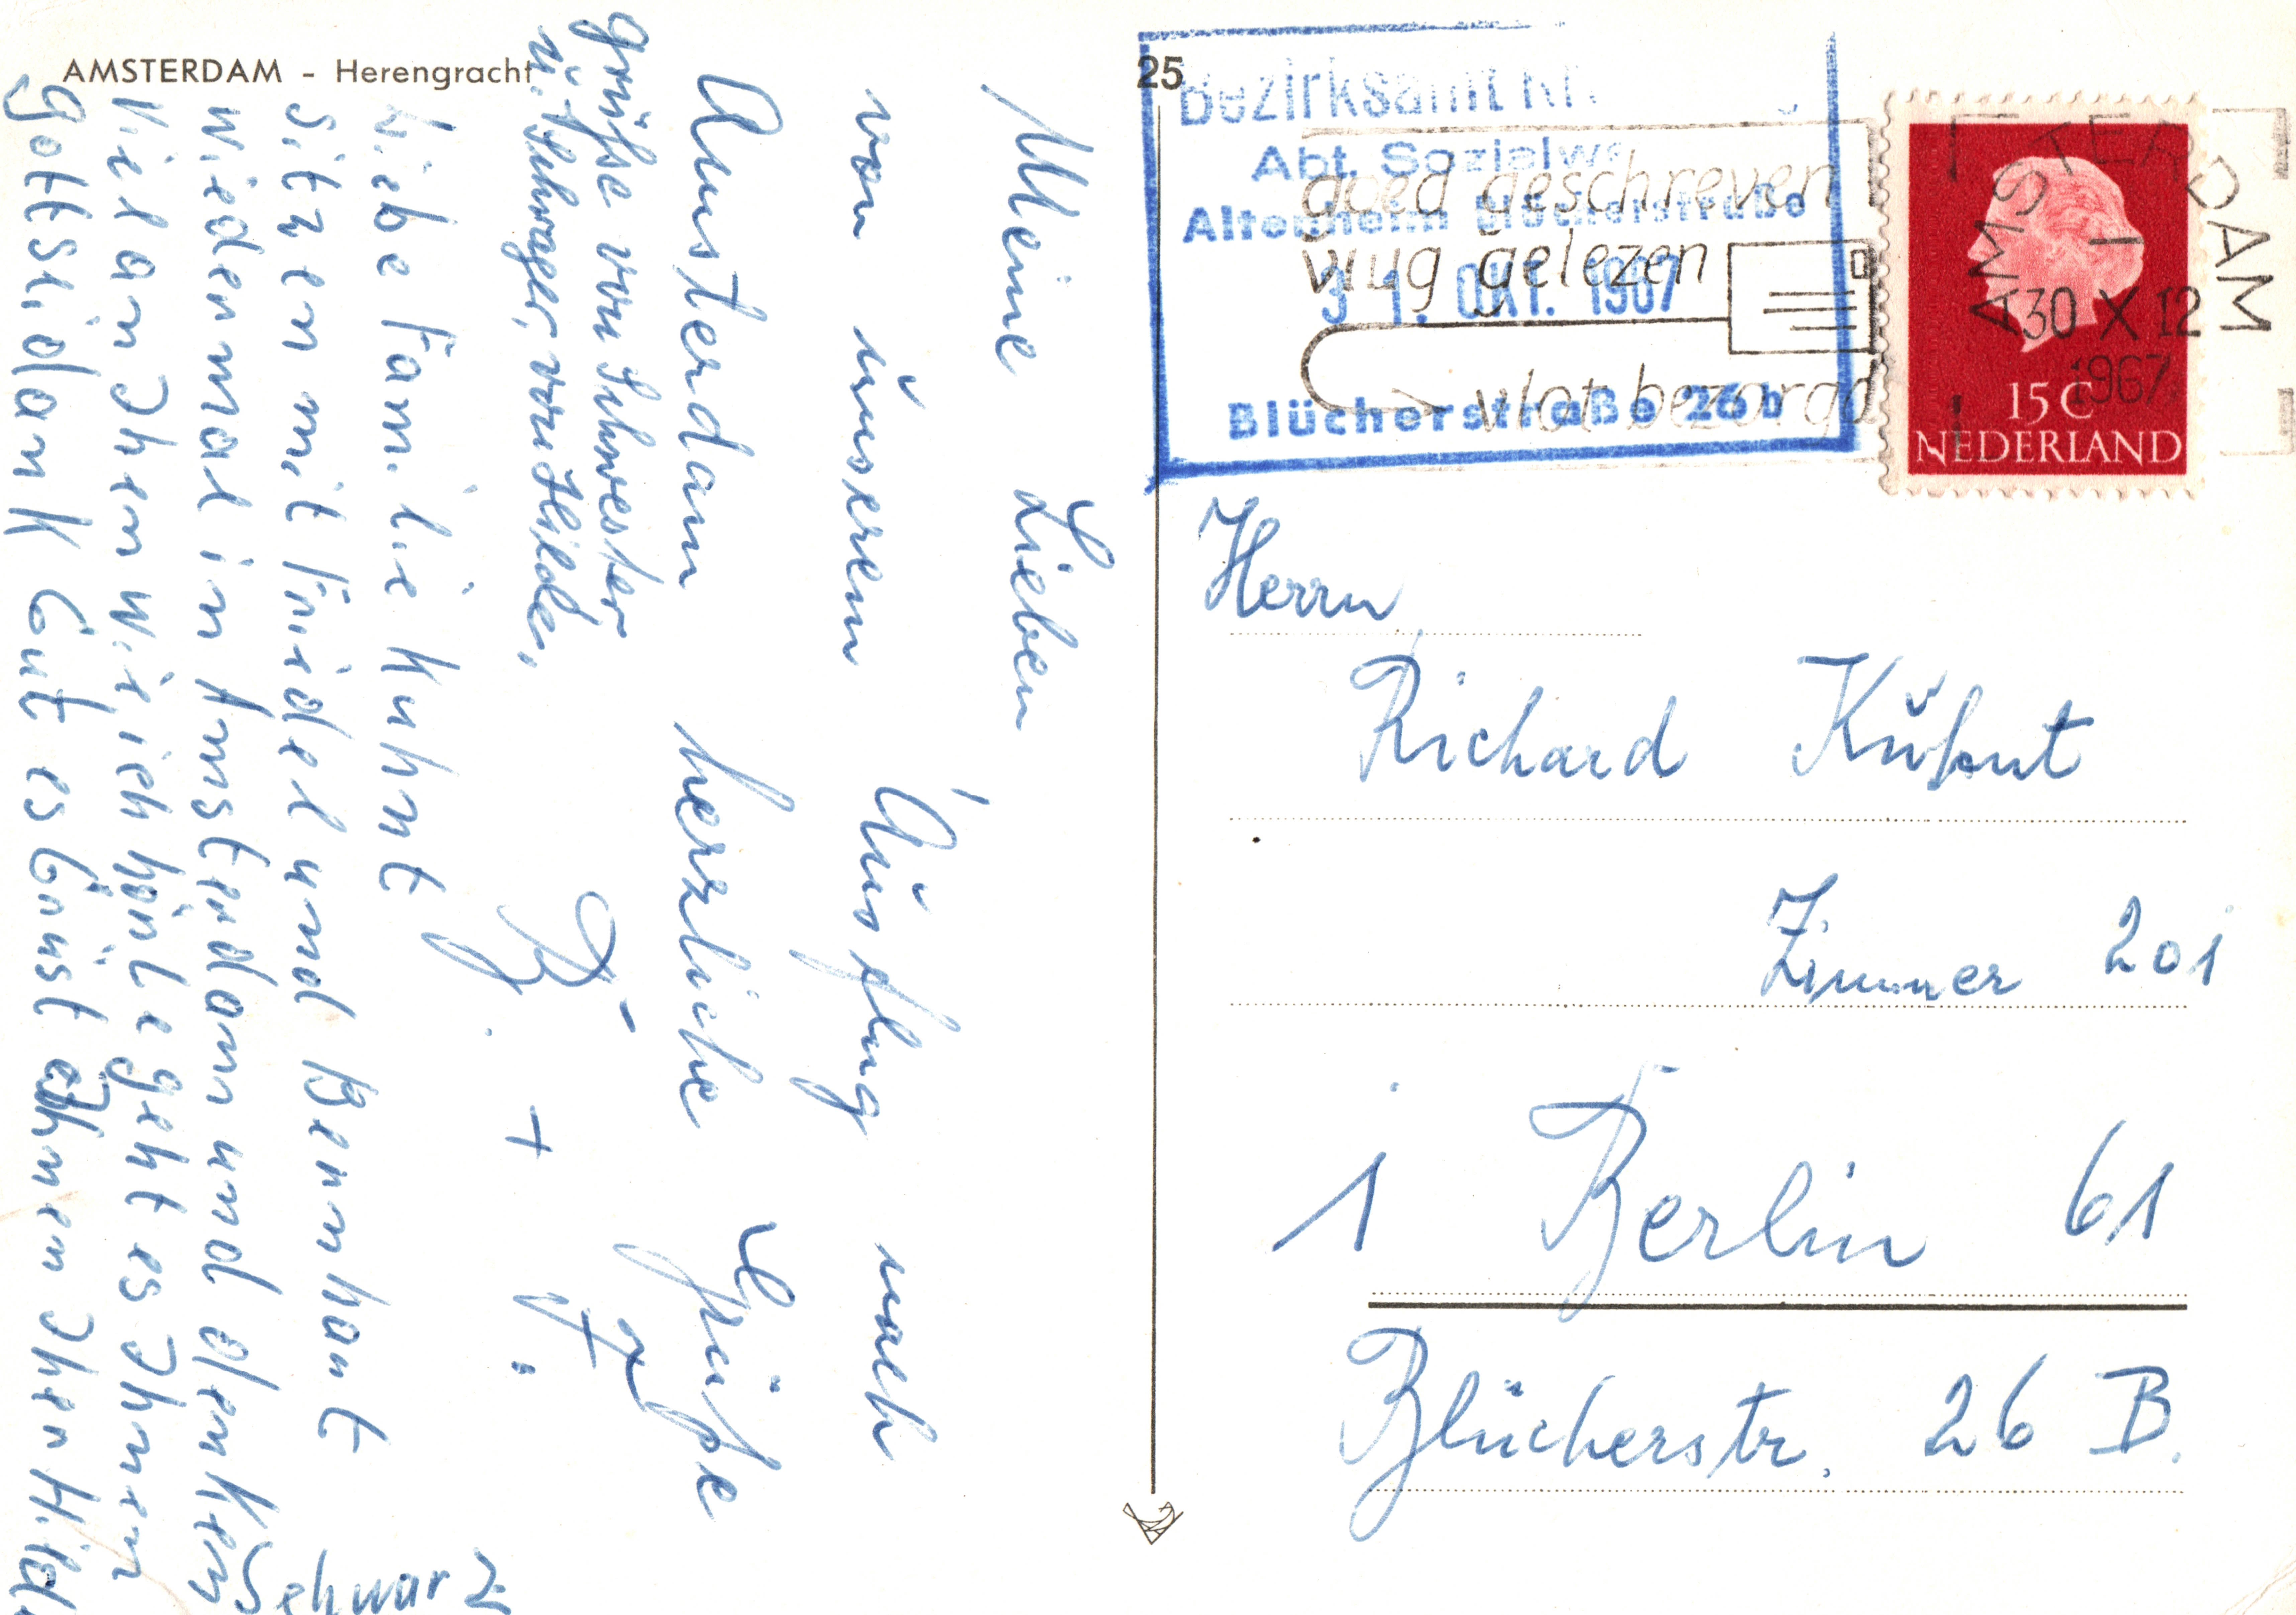 AMSTERDAM - Herengracht
25
Meine Lieben
von unserem Ausflug nach
Amsterdam herzliche Grüße
B. + H.
grüße von Schwester
u. Schwager, von Hilde,
Liebe Familie Kuhnt
Sitzen mit Friedel und Bernhard
wiedermal in Amsterdam und denken
viel an Ihnen wie ich höhle geht es Ihnen
Gottseidank Gut es Grüst Ihnen Ihrer Hilde
Schwarz
Bezirksamt
Abt. Sozialw
Altenheim Blücherstraße
31. OKT. 1967
Blücherstraße 26b
goed geschreven
vlug gelezen
vlot bezorgd
AMSTERDAM
30 X 12
1967
15 C
NEDERLAND
Herrn
Richard Kuhnt
Zimmer 201
1 Berlin 61
Blücherstr. 26 B.